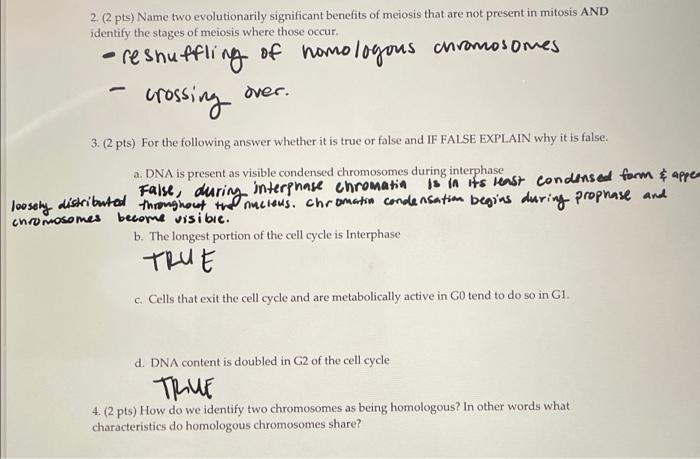 2. (2 pts) Name two evolutionarily significant benefits of meiosis that are not present in mitosis AND
identify the stages of meiosis where those occur.
- reshuffling of homologous chromosomes
- crossing over.
3. (2 pts) For the following answer whether it is true or false and IF FALSE EXPLAIN why it is false.
a. DNA is present as visible condensed chromosomes during interphase
False, during interphase chromatin is in its least condensed form & appea
loosely distributed throughout the nucleus. chromatin condensation begins during prophase and
chromosomes become visible.
b. The longest portion of the cell cycle is Interphase
TRUE
c. Cells that exit the cell cycle and are metabolically active in G0 tend to do so in G1.
d. DNA content is doubled in G2 of the cell cycle
TRUE
4. (2 pts) How do we identify two chromosomes as being homologous? In other words what
characteristics do homologous chromosomes share?